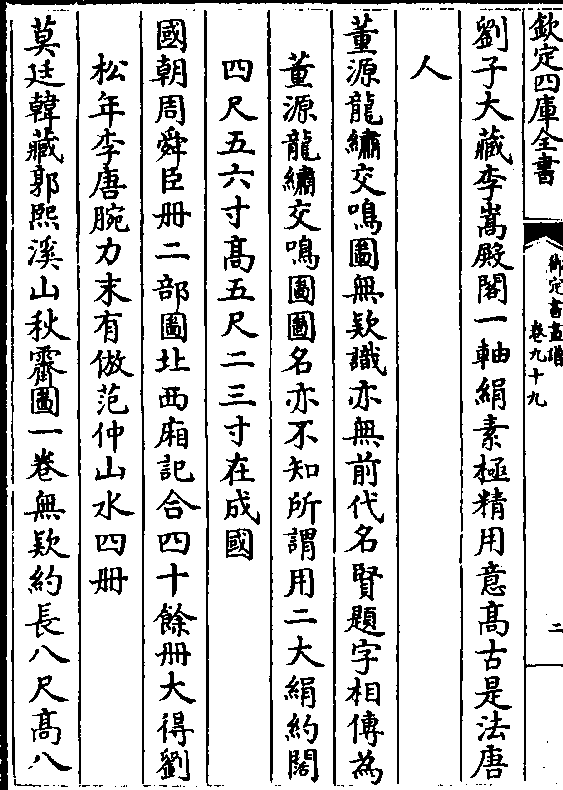 欽定四庫全書
御定書畫譜
卷九十九
二
劉子大藏李嵩殿閣一軸絹素極精用意高古是法唐
人
董源龍繡交鳴圖無欵識亦無前代名賢題字相傳為
董源龍繡交鳴圖圖名亦不知所謂用二大絹約闊
四尺五六寸高五尺二三寸在成國
國朝周舜臣冊二部圖北西廂記合四十餘冊大得劉
松年李唐腕力末有倣范仲山水四冊
莫廷韓藏郭熙溪山秋霽圖一卷無欵約長八尺高八